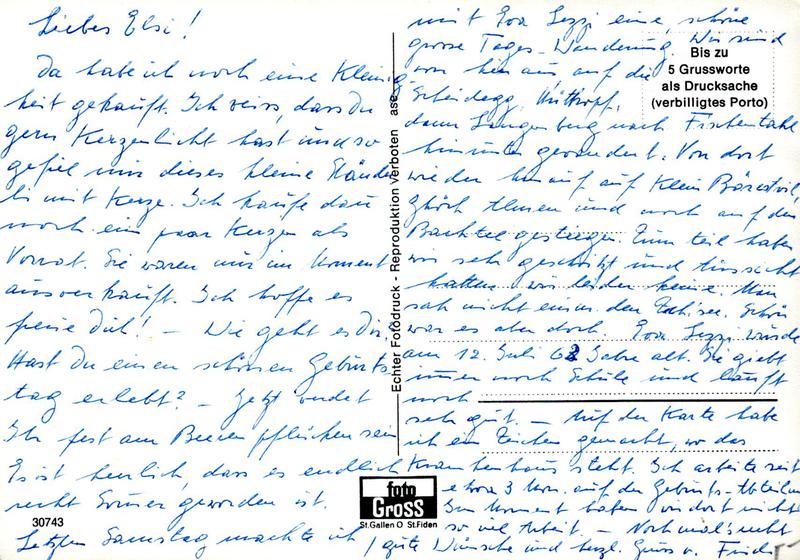 Liebes Elsi!
Da habe ich noch eine Kleinig-
keit gekauft. Ich weiss, dass du
gern Kerzenlicht hast und so
gefiel mir dieses kleine Ständer-
li mit Kerze. Ich kaufe dann
noch ein paar Kerzen als
Vorrat. Sie waren nur im Moment
ausverkauft. Ich hoffe es
freue dich! – Wie geht es Dir?
Hast Du einen schönen Geburts-
tag erlebt? – Jetzt werdet
Ihr fest am Beeren pflücken sein
Es ist herrlich, dass es endlich
recht Sommer geworden ist.
Letzten Samstag machte ich
mit Eva eine schöne
grosse Tages-Wanderung. Wir sind
von hier aus auf die
Scheidegg, Hüttkopf,
dann nach Fischenthal
hinunter gewandert. Von dort
wieder hinauf auf Klein Bäretswil,
und noch auf den
Bachtel gestiegen. Zum teil haben
wir sehr geschwitzt und Aussicht
hatten wir leider keine. Man
sah nicht einmal den See. Schön
war es aber doch. Eva wurde
am 12. Juli 62 Jahre alt. Sie giebt
immer noch Schule und läuft
noch
sehr gut. – Auf der Karte habe
ich ein Zeichen gemacht, wo das
Krankenhaus steht. Ich arbeite seit
etwa 3 auf der Geburts-Abteilung
Im Moment haben wir dort nicht
so viel Arbeit. – Nochmals recht
gute Wünsche und herzl. Gruss v. Frieda
Bis zu
5 Grussworte
als Drucksache
(verbilligtes Porto)
Echter Fotodruck - Reproduktion verboten
ase
foto
Gross
St.Gallen O St.Fiden
30743